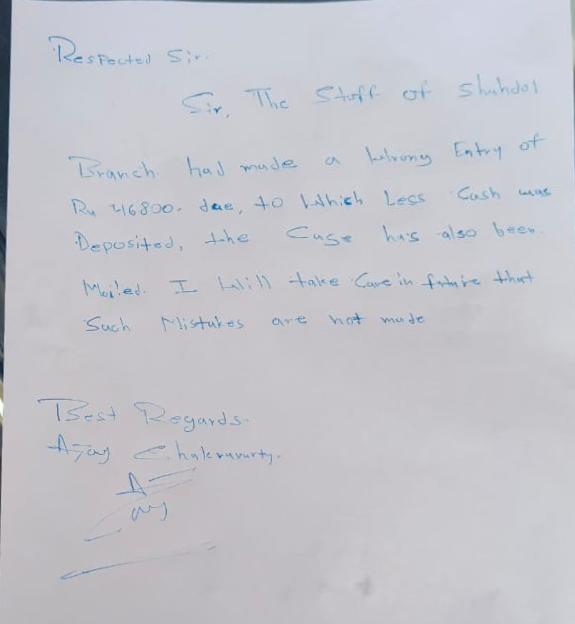 Respected Sir.
Sir, The Staff of Shahdol
Branch had made a Wrong Entry of
Rs 46800. due, to Which Less Cash was
Deposited, the Case has also been
Mailed. I Will take Care in future that
Such Mistakes are not made
Best Regards.
Ajay Chakravarty.